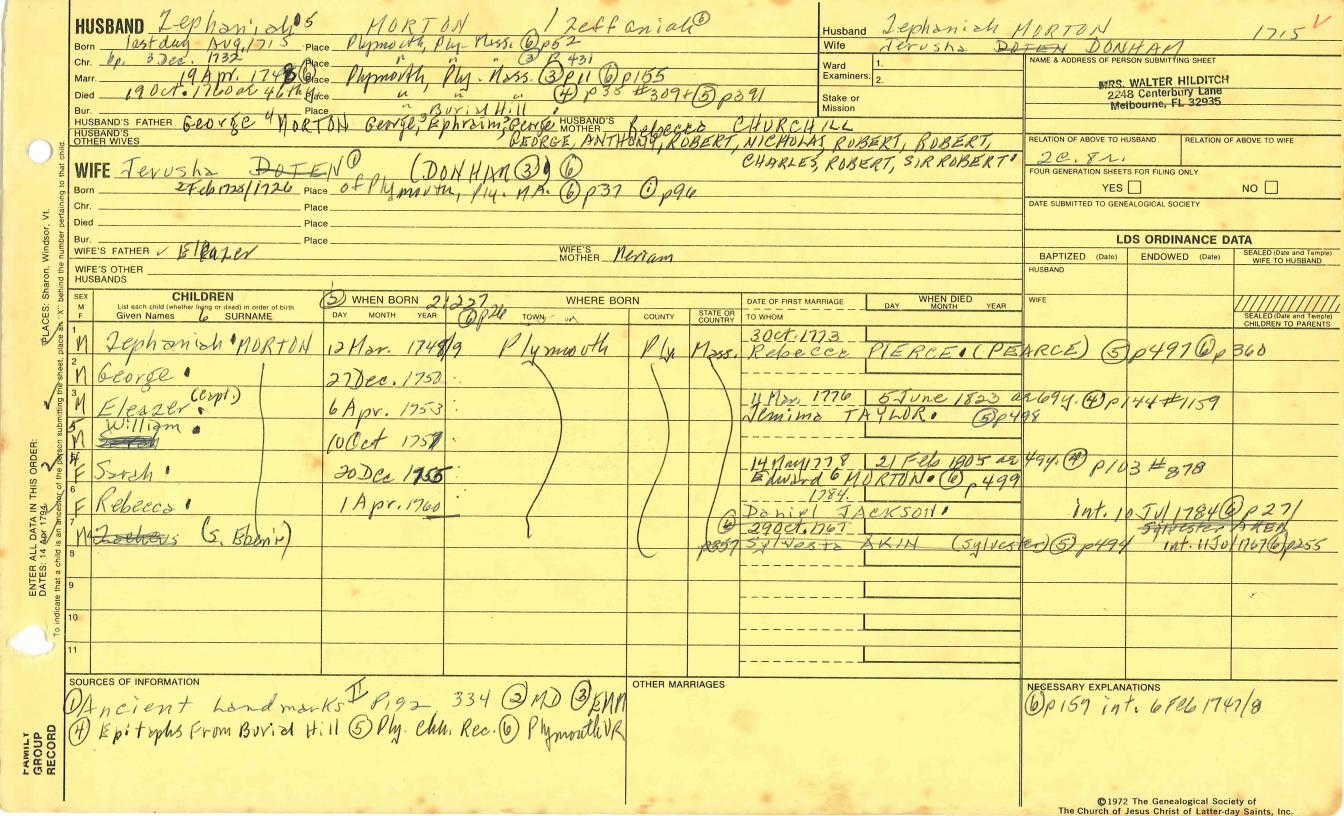 HUSBAND Zephaniah 5 MORTON / Zeffaniah ⑥
Born last day Aug, 1715 Place Plymouth, Ply. Mass. ⑥ p52
Chr. bp. 3 Dec. 1732 Place " " " ⑤ p 431
Marr. 19 Apr. 1748 ⑥ Place Plymouth, Ply. Mass. ③ p11 ⑥ p155
Died 19 Oct. 1760 ae 46th y Place " " " ④ p35 #309+ ⑤ p391
Bur. Place " Burial Hill
HUSBAND'S FATHER George 4 MORTON George, 3 Ephraim, 2 George HUSBAND'S MOTHER Rebecca CHURCHILL
HUSBAND'S OTHER WIVES GEORGE, ANTHONY, ROBERT, NICHOLAS, ROBERT, ROBERT,
CHARLES, ROBERT, SIR ROBERT'
WIFE Jerusha DOTEN ① (DONHAM ③) ⑥
Born 2 Feb 1725/1726 Place of Plymouth, Ply. MA. ⑥ p37 ① p96
Chr. Place
Died Place
Bur. Place
WIFE'S FATHER ✓ Eleazer WIFE'S MOTHER Meriam
WIFE'S OTHER HUSBANDS
Husband Zephaniah MORTON 1715 ✓
Wife Jerusha DOTEN DONHAM
Ward Examiners: 1.
2.
Stake or Mission
NAME & ADDRESS OF PERSON SUBMITTING SHEET
MRS. WALTER HILDITCH
2248 Canterbury Lane
Melbourne, FL 32935
RELATION OF ABOVE TO HUSBAND RELATION OF ABOVE TO WIFE
2c. 8r.
FOUR GENERATION SHEETS FOR FILING ONLY
YES NO
DATE SUBMITTED TO GENEALOGICAL SOCIETY
LDS ORDINANCE DATA
BAPTIZED (Date) ENDOWED (Date) SEALED (Date and Temple) WIFE TO HUSBAND
HUSBAND
WIFE
SEALED (Date and Temple) CHILDREN TO PARENTS
SEX M F
CHILDREN
List each child (whether living or dead) in order of birth
Given Names 6 SURNAME
⑤ WHEN BORN 2, 227
DAY MONTH YEAR ⑥ p26
WHERE BORN
TOWN COUNTY STATE OR COUNTRY
DATE OF FIRST MARRIAGE
TO WHOM
WHEN DIED
DAY MONTH YEAR
1 M Zephaniah MORTON 12 Mar. 1748/9 Plymouth Ply. Mass. 30 Oct. 1773
Rebecca PIERCE. (PEARCE) ⑤ p497 ⑥ p360
2 M George 27 Dec. 1750
3 M Eleazer (Capt.) 6 Apr. 1753 11 Mar. 1776 5 June 1823 ae 69 y. ④ p144 #1159
Jemima TAYLOR. ⑤ p498
5 M William 10 Oct 1757
4 F Sarah 20 Dec 1955 14 May 1778 21 Feb 1805 ae 49 y. ④ p103 #878
Edward 6 MORTON. ⑥ p499
6 F Rebecca 1 Apr. 1760 1784.
Daniel JACKSON. int. 10 Jul 1784 ⑥ p271
7 M
⑥ 29 Oct. 1767 Sylvester AKEN
8 p357 AKIN (Sylvester) ⑤ p494 int. 11 Jul 1767 ⑥ p255
9
10
11
SOURCES OF INFORMATION
① Ancient Landmarks II P192, 334 ② MD ③
④ Epitaphs From Burial Hill ⑤ Ply. Chh. Rec. ⑥ Plymouth VR
OTHER MARRIAGES
NECESSARY EXPLANATIONS
⑥ p157 int. 6 Feb 1747/8
©1972 The Genealogical Society of
The Church of Jesus Christ of Latter-day Saints, Inc.
ENTER ALL DATA IN THIS ORDER:
DATES: 14 Apr 1794 PLACES: Sharon, Windsor, Vt.
To indicate that a child is an ancestor of the person submitting the sheet, place an "X" behind the number pertaining to that child.
FAMILY
GROUP
RECORD